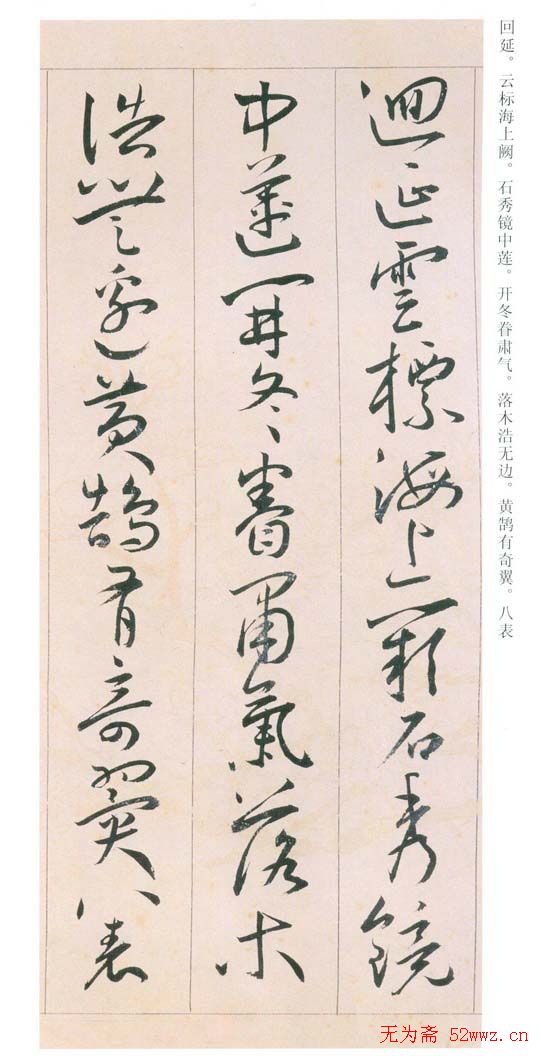 回延。云标海上阙。石秀镜中莲。开冬眷肃气。落木浩无边。黄鹄有奇翼。八表
迴延雲標海上闕石秀鏡
中蓮開冬眷肅氣落木
浩無邊黃鵠有奇翼八表
无为斋 52wwz.cn